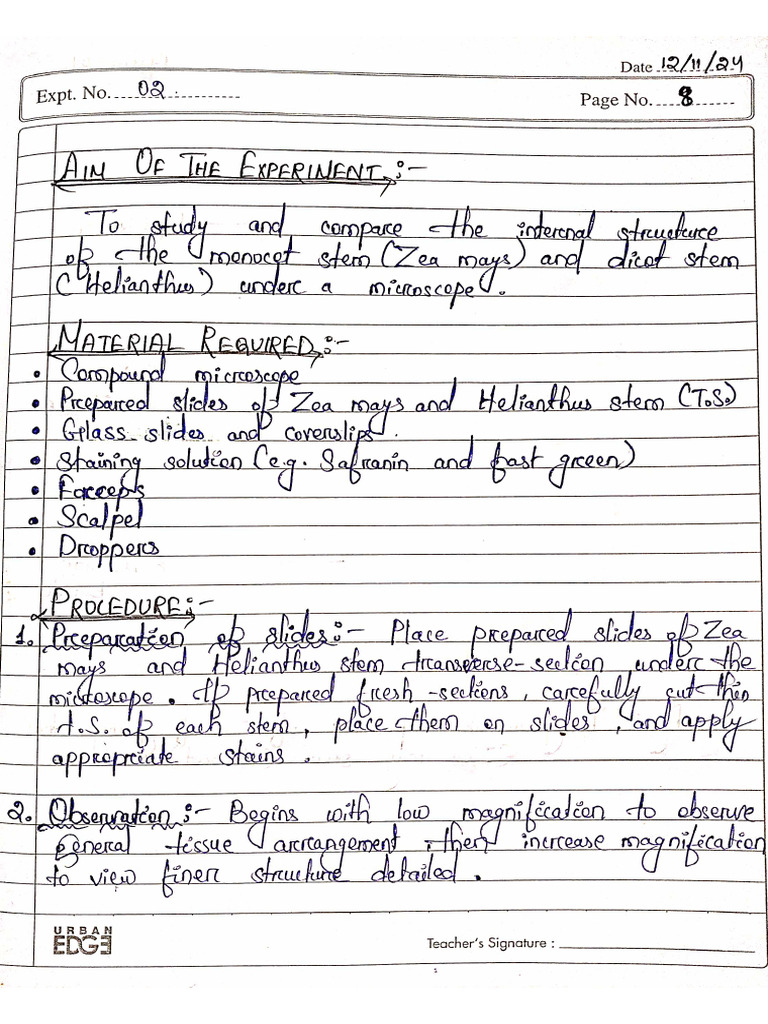 Date 12/11/24
Expt. No. 02
Page No. 8
AIM OF THE EXPERIMENT :-
To study and compare the internal structure
of the monocot stem (Zea mays) and dicot stem
(Helianthus) under a microscope.
MATERIAL REQUIRED :-
• Compound microscope
• Prepared slides of Zea mays and Helianthus stem (T.S.)
• Glass slides and coverslips.
• Staining solution (e.g. Safranin and fast green)
• Forceps
• Scalpel
• Droppers
PROCEDURE :-
1. Preparation of slides :- Place prepared slides of Zea
mays and Helianthus stem transverse-section under the
microscope. If prepared fresh-sections, carefully cut thin
t.s. of each stem, place them on slides, and apply
appropriate stains.
2. Observation :- Begins with low magnification to observe
general tissue arrangement, then increase magnification
to view finer structure detailed.
URBAN
EDGE
Teacher's Signature :